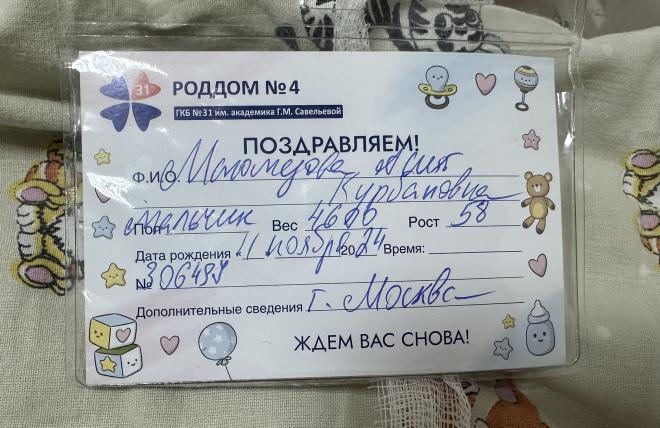 31
РОДДОМ №4
ГКБ №31 им. академика Г.М. Савельевой
ПОЗДРАВЛЯЕМ!
Ф.И.О. Магомедова
Курбановна
Пол мальчик Вес Рост 58
Дата рождения 11 ноября 2024 Время:
№
Дополнительные сведения г. Москва
ЖДЕМ ВАС СНОВА!